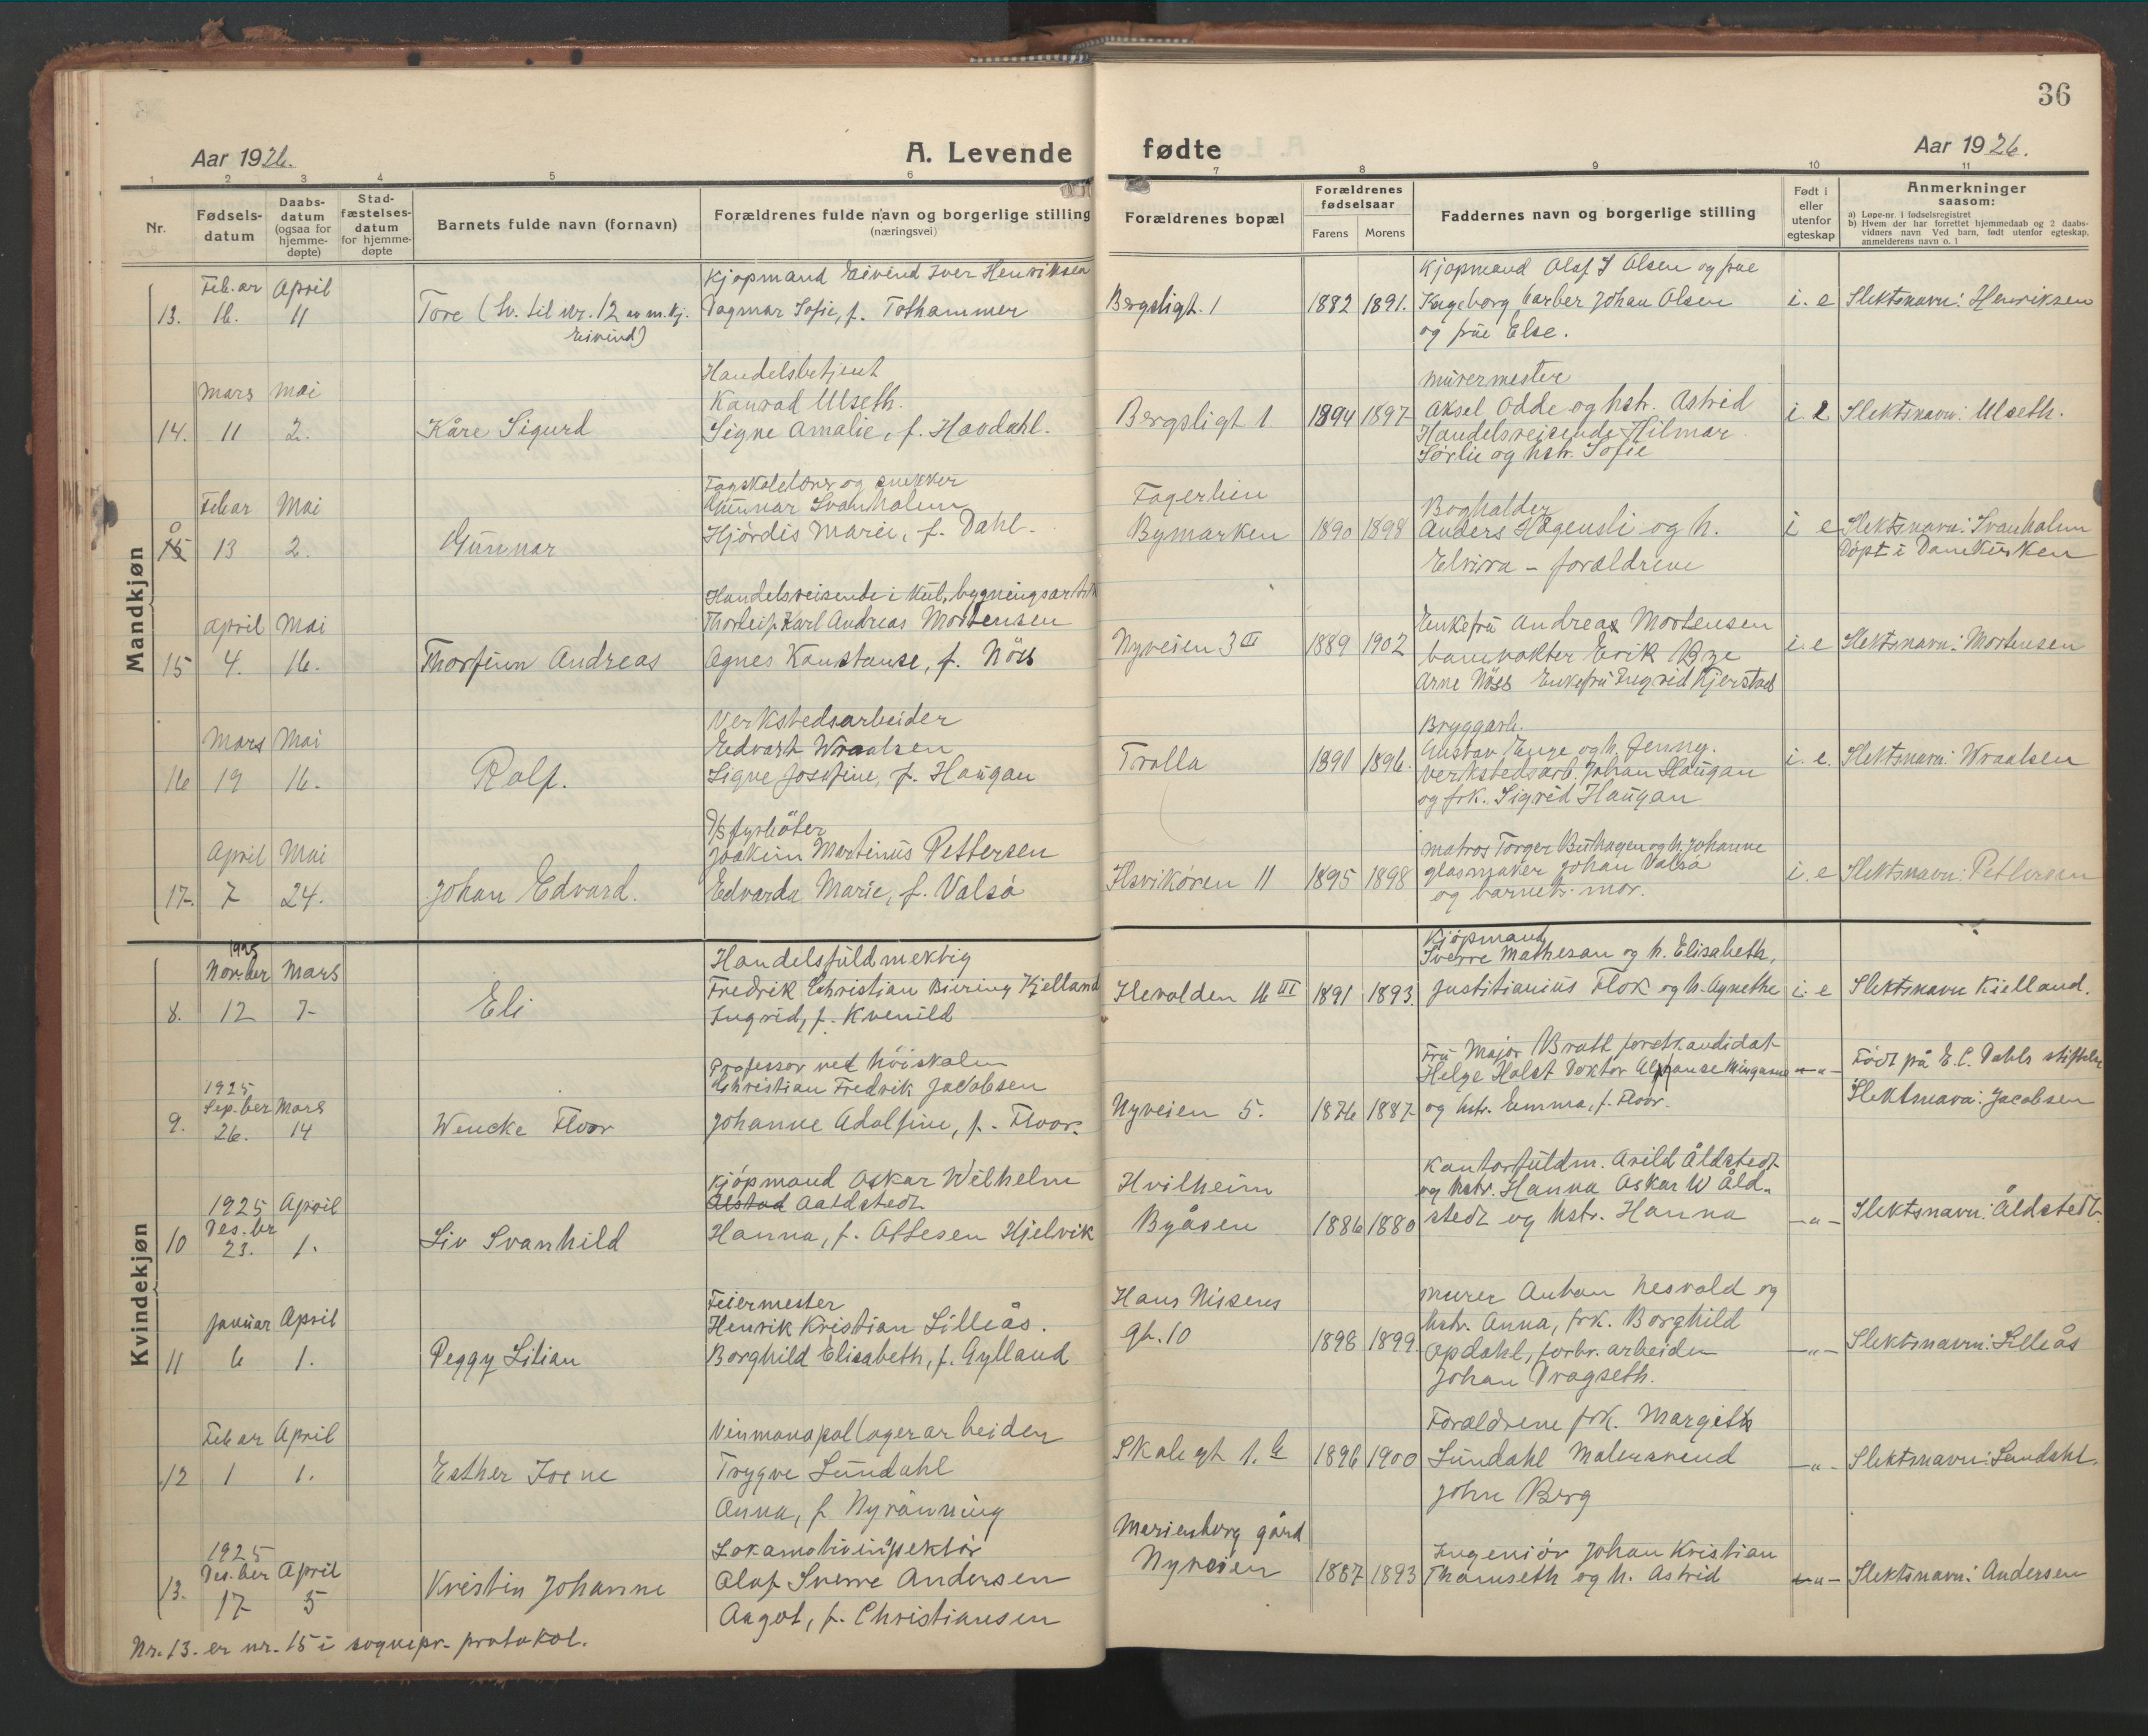 36
Aar 1926.
A. Levende fødte
Aar 1926.
1 2 3 4 5 6 7 8 9 10 11
Nr.
Fødsels-
datum
Daabs-
datum
(ogsaa for
hjemme-
døpte)
Stad-
fæstelses-
datum
for hjemme-
døpte
Barnets fulde navn (fornavn)
Forældrenes fulde navn og borgerlige stilling
(næringsvei)
Forældrenes bopæl
Forældrenes
fødselsaar
Farens
Morens
Faddernes navn og borgerlige stilling
Født i
eller
utenfor
egteskap
Anmerkninger
saasom:
a) Løpe-nr. i fødselsregistret
b) Hvem der har forrettet hjemmedaab og 2 daabs-
vidners navn Ved barn, født utenfor egteskap,
anmelderens navn o. l
Mandkjøn
13.
Feb.ar
16.
April
11
Tore (tv. til nr. 12 av m.kj.
Eivind)
Kjøpmand Eivind Iver Henriksen
Dagmar Sofie, f. Tothammer
Bergsligt. 1
1882
1891.
Kjøpmand Olaf S Olsen og frue
Ingeborg, barber Johan Olsen
og frue Else.
i. e
Slektsnavn: Henriksen
14.
Mars
11
Mai
2.
Kåre Sigurd
Handelsbetjent
Konrad Ulseth.
Signe Amalie, f. Hovdahl.
Bergsligt 1
1894
1897
Murermester
Aksel Odde og hstr. Astrid
Handelsreisende Hilmar
Sørlie og hstr. Sofie
i. e
Slektsnavn: Ulseth.
Å
15
Feb.ar
13
Mai
2.
Gunnar
Fagskolelærer og snekker
Gunnar Svanholm
Hjørdis Marie, f. Dahl.
Fagerlien
Bymarken
1890
1898
Bogholder
Anders Hagensli og h.
Elvira – forældrene
i e
Slektsnavn: Svanholm
Døpt i Domkirken
15
April
4.
Mai
16.
Thorfinn Andreas
Handelsreisende i
Thorleif Karl Andreas Mortensen
Agnes Konstanse, f. Nöss
Nyveien 3 II
1889
1902
Enkefru Andreas Mortensen
banevokter Erik Bye
Arne Nöss Enkefru Ingrid Kjerstad
i. e
Slektsnavn: Mortensen
16
Mars
19
Mai
16.
Rolf.
Verkstedsarbeider
Edvart Wraalsen
Signe Josefine, f. Haugan
Trolla
1891
1896.
Bryggarb.
Gustav Enge og h. Jenny.
Verkstedsarb. Johan Haugan
og frk. Sigrid Haugan
i. e.
Slektsnavn: Wraalsen
17.
April
7
Mai
24.
Johan Edvard.
D/s fyrbøter
Joakim Martinus Pettersen
Edvarda Marie, f. Valsö
Ilsvikøren 11
1895
1898
Matros Torger Buhagen og h. Johanne
glasmaker Johan Valsö
og barnets mor.
i. e
Slektsnavn: Pettersen
Kvindekjøn
8.
1925
Nov.ber
12
Mars
7
Eli
Handelsfuldmektig
Fredrik Christian Büring Kjelland
Ingrid, f. Kvenild
Ilevolden 16 III
1891
1893.
Kjøpmand
Sverre Matheson og h. Elisabeth,
Justitiarius Flok og h. Agnethe
i. e
Slektsnavn Kielland.
9.
1925
Sep.ber
26.
Mars
14
Wencke Floor
Professor ved höiskolen
Christian Fredrik Jacobsen
Johanne Adolfine, f. Floor.
Nyveien 5.
1876
1887
Fru Major Bratt forstkandidat
Helge Holst Doktor
og hstr. Emma, f. Floor.
– „ –
Født på E.C. Dahls stiftelse
Slektsnavn: Jacobsen
10
1925
Des.br
23.
April
1.
Liv Svanhild
Kjøpmand Oskar Wilhelm
Alstad Aaldstedt
Hanna, f. Ottesen Hjelvik
Hvilheim
Byåsen
1886
1880
Kontorfuldm. Arild Åldstedt
og hstr. Hanna Oskar W Åld-
stedt og hstr. Hanna
– „ –
Slektsnavn: Åldstedt.
11
Januar
6
April
1.
Peggy Lilian
Feiermester
Henrik Kristian Lilleås.
Borghild Elisabeth, f. Gylland
Hans Nissens
gt. 10
1898
1899.
Murer Anton Nesvold og
hstr. Anna, frk. Borghild
Opdahl, forbr. arbeider
Johan Dragseth.
– „ –
Slektsnavn: Lilleås
12
Feb.ar
1
April
1.
Esther Irene
Vinmonopollagerarbeider
Trygve Lundahl
Anna, f. Nyrønning
Skolegt 1. b
1896
1900
Forældrene frk. Margith
Lundahl Malersvend
John Berg
– „ –
Slektsnavn: Lundahl.
13.
1925
Des.ber
17
April
5
Kristin Johanne
Lokomotivinspektør
Olaf Sverre Andersen
Aagot, f. Christiansen
Marienborg gård
Nyveien
1887
1893
Ingeniör Johan Kristian
Thomseth og h. Astrid
– „ –
Slektsnavn: Andersen
Nr. 13. er nr. 15 i sognepr. protokol.